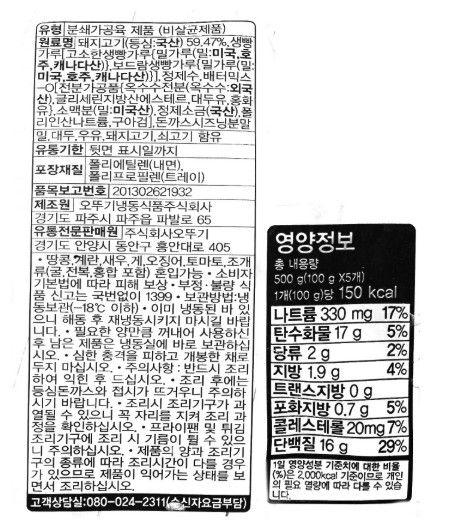 유형 분쇄가공육 제품 (비살균제품)
원료명 돼지고기(등심:국산) 59.47%, 생빵
가루[고소한생빵가루{밀가루(밀:미국,호
주,캐나다산)},보드람생빵가루{밀가루(밀:
미국,호주,캐나다산)}], 정제수, 배터믹스
-O[전분가공품{옥수수전분(옥수수:외국
산),글리세린지방산에스테르,대두유,홍화
유}, 소맥분(밀:미국산), 정제소금(국산),폴
리인산나트륨,구아검], 돈까스시즈닝분말
밀,대두,우유,돼지고기,쇠고기 함유
유통기한 뒷면 표시일까지
포장재질 폴리에틸렌(내면),
폴리프로필렌(트레이)
품목보고번호 201302621932
제조원 오뚜기냉동식품주식회사
경기도 파주시 파주읍 파발로 65
유통전문판매원 주식회사오뚜기
경기도 안양시 동안구 흥안대로 405
• 땅콩,계란,새우,게,오징어,토마토,조개
류(굴,전복,홍합 포함) 혼입가능 • 소비자
기본법에 따라 피해 보상 • 부정·불량 식
품 신고는 국번없이 1399 • 보관방법:냉
동보관(-18℃ 이하) • 이미 냉동된 바 있
으니 해동 후 재냉동시키지 마시길 바랍
니다. • 필요한 양만큼 꺼내어 사용하신
후 남은 제품은 냉동실에 바로 보관하십
시오. • 심한 충격을 피하고 개봉한 채로
두지 마십시오. • 주의사항 : 반드시 조리
하여 익힌 후 드십시오. • 조리 후에는
등심돈까스와 접시가 뜨거우니 주의하
시기 바랍니다. • 조리시 조리기구가 과
열될 수 있으니 꼭 자리를 지켜 조리 과
정을 확인하십시오. • 프라이팬 및 튀김
조리기구에 조리 시 기름이 튈 수 있으
니 주의하십시오. • 제품의 양과 조리기
구의 종류에 따라 조리시간이 다를 경우
가 있으므로 제품이 익어가는 상태를 보
면서 조리하십시오.
고객상담실:080-024-2311(수신자요금부담)
영양정보
총 내용량
500 g(100 g X5개)
1개(100 g)당 150 kcal
나트륨 330 mg 17%
탄수화물 17 g 5%
당류 2 g 2%
지방 1.9 g 4%
트랜스지방 0 g
포화지방 0.7 g 5%
콜레스테롤 20mg 7%
단백질 16 g 29%
1일 영양성분 기준치에 대한 비율
(%)은 2,000kcal 기준이므로 개인
의 필요 열량에 따라 다를 수 있습
니다.